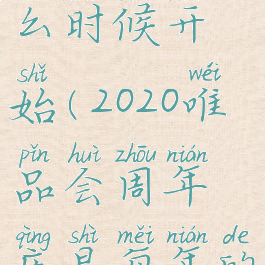 么时候开
shǐ wéi
始(2020唯
pǐn huì zhōu nián
品会周年
qìng shì měi nián de
庆是每年的